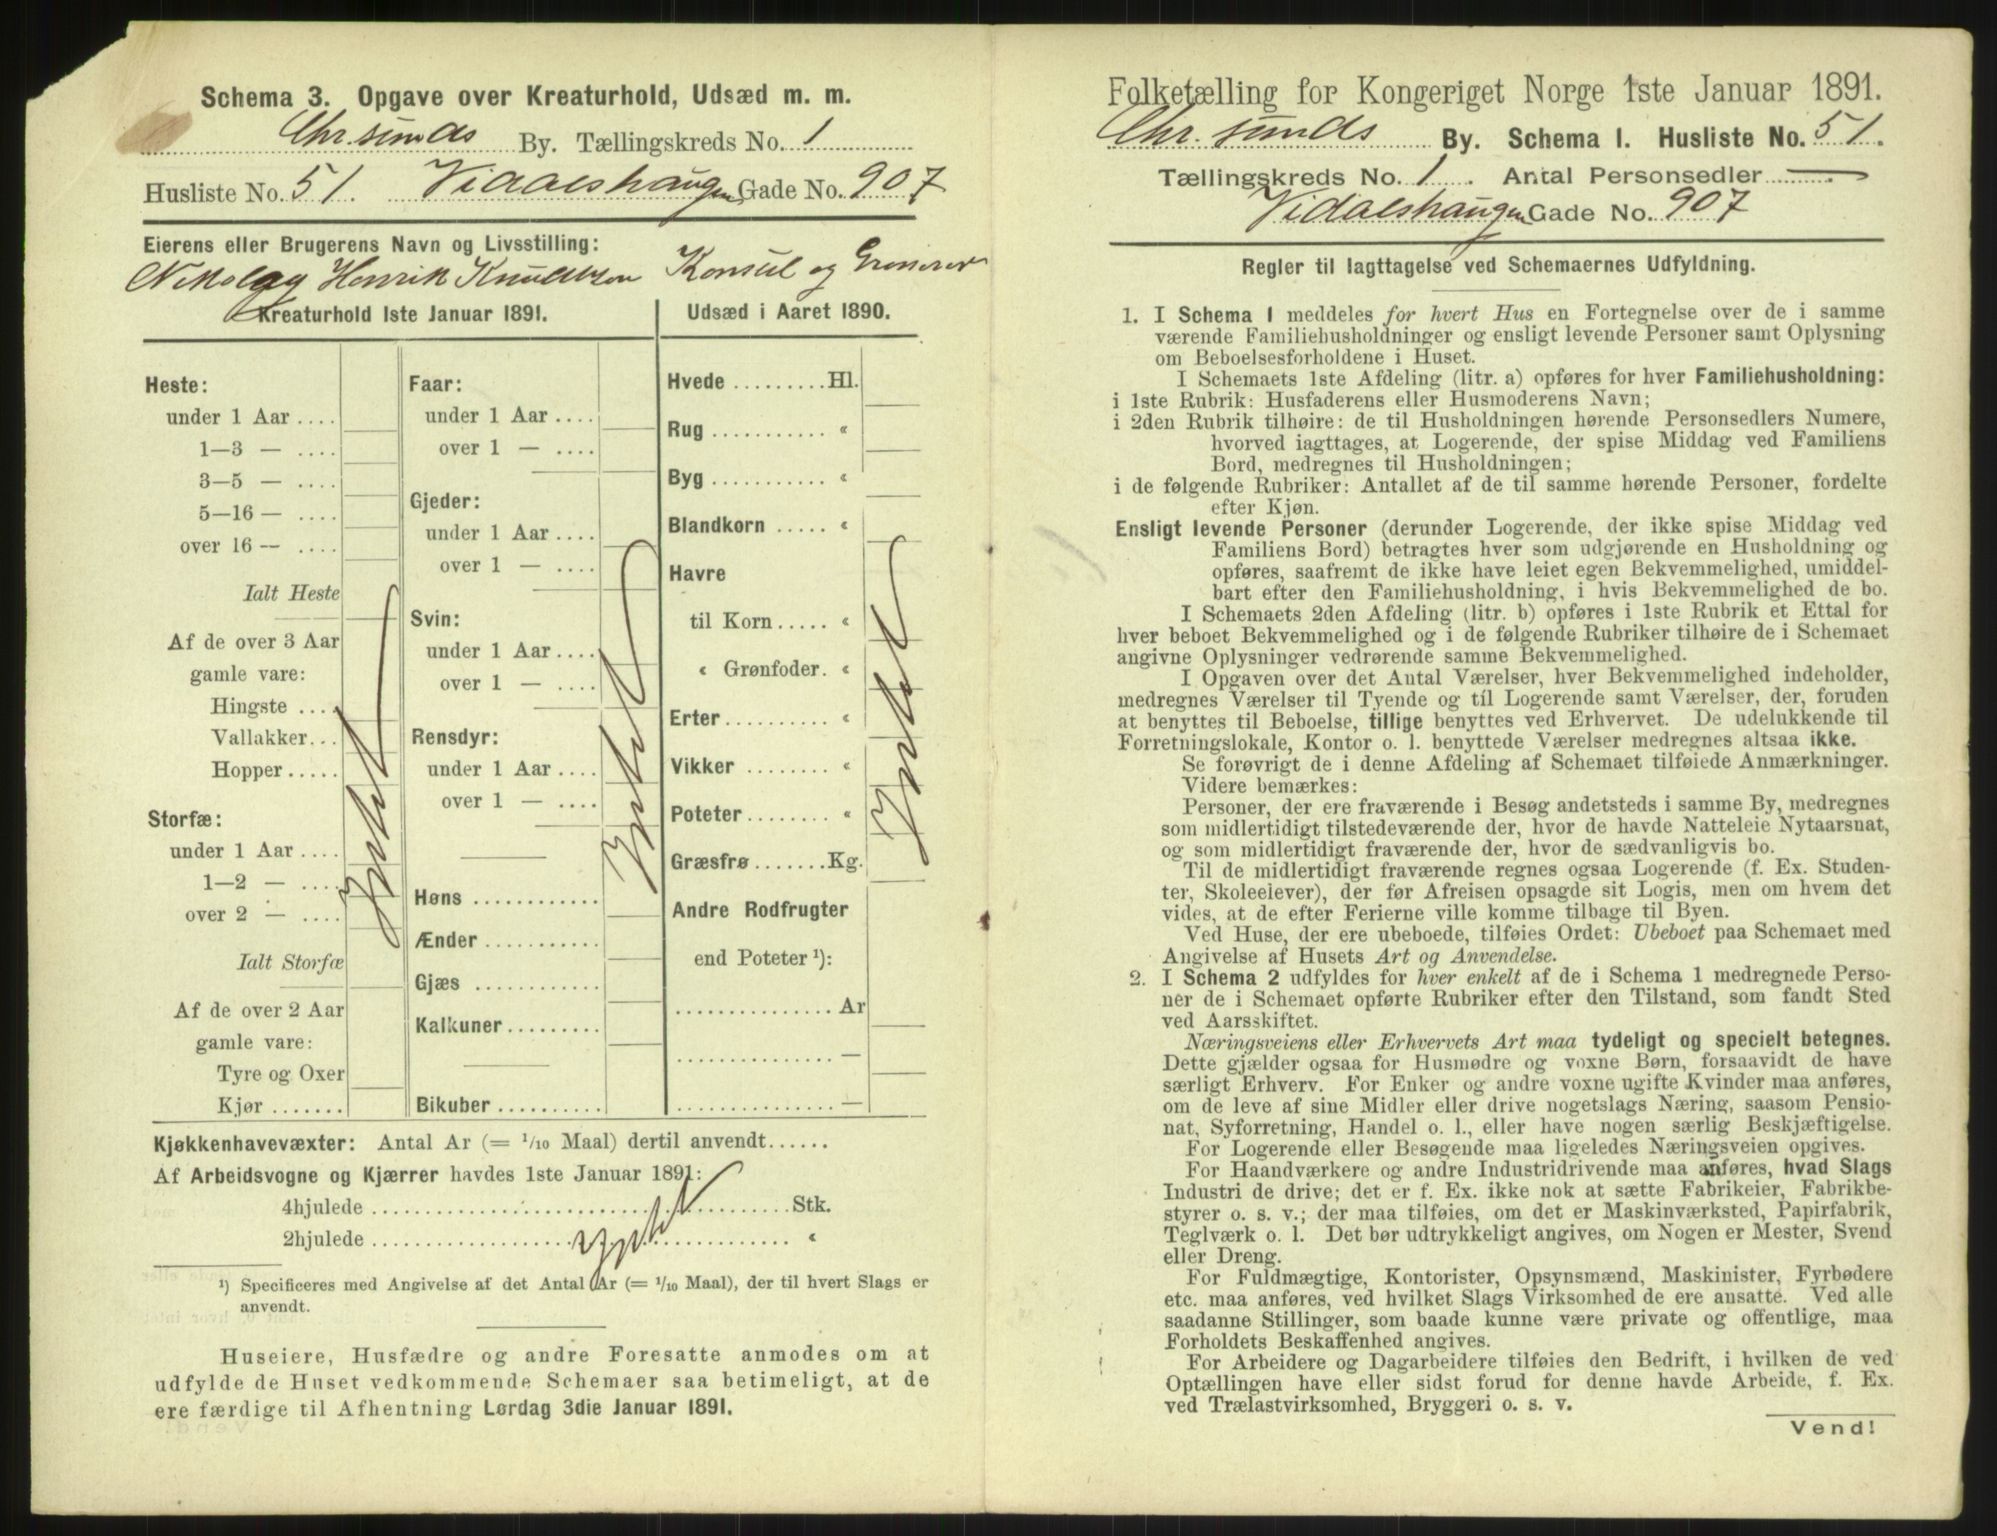 Schema 3. Opgave over Kreaturhold, Udsæd m. m.
Chr.sunds By. Tællingskreds No. 1
Husliste No. 51. Vidalshaugen Gade No. 907
Eierens eller Brugerens Navn og Livsstilling:
Nikolay Henrik Knudtzon Konsul og Grosserer
Kreaturhold 1ste Januar 1891.
Heste:
under 1 Aar ....
1—3 — ....
3—5 — ....
5—16 — ....
over 16 — ....
Ialt Heste
Af de over 3 Aar
gamle vare:
Hingste ....
Vallakker...
Hopper.....
Storfæ:
under 1 Aar ....
1—2 — ....
over 2 — ....
Ialt Storfæ
Af de over 2 Aar
gamle vare:
Tyre og Oxer
Kjør .......
Intet
Faar:
under 1 Aar ....
over 1 — ....
Gjeder:
under 1 Aar ....
over 1 — ....
Svin:
under 1 Aar ....
over 1 — ....
Rensdyr:
under 1 Aar ....
over 1 — ....
Høns ............
Ænder ...........
Gjæs ............
Kalkuner.........
Bikuber ..........
Intet
Udsæd i Aaret 1890.
Hvede .........Hl.
Rug ........... «
Byg ........... «
Blandkorn ..... «
Havre
til Korn..... «
« Grønfoder. «
Erter .......... «
Vikker ........ «
Poteter........ «
Græsfrø .......Kg.
Andre Rodfrugter
end Poteter ¹):
............... Ar
............... —
............... —
Intet
Kjøkkenhavevæxter: Antal Ar (= 1/10 Maal) dertil anvendt......
Af Arbeidsvogne og Kjærrer havdes 1ste Januar 1891:
4hjulede ........................................ Stk.
2hjulede ........................................ «
Intet
¹) Specificeres med Angivelse af det Antal Ar (= 1/10 Maal), der til hvert Slags er
anvendt.
Huseiere, Husfædre og andre Foresatte anmodes om at
udfylde de Huset vedkommende Schemaer saa betimeligt, at de
ere færdige til Afhentning Lørdag 3die Januar 1891.
Folketælling for Kongeriget Norge 1ste Januar 1891.
Chr.sunds By. Schema I. Husliste No. 51.
Tællingskreds No. 1. Antal Personsedler —.
Vidalshaugen Gade No. 907
Regler til Iagttagelse ved Schemaernes Udfyldning.
1. I Schema 1 meddeles for hvert Hus en Fortegnelse over de i samme
værende Familiehusholdninger og ensligt levende Personer samt Oplysning
om Beboelsesforholdene i Huset.
I Schemaets 1ste Afdeling (litr. a) opføres for hver Familiehusholdning:
i 1ste Rubrik: Husfaderens eller Husmoderens Navn;
i 2den Rubrik tilhøire: de til Husholdningen hørende Personsedlers Numere,
hvorved iagttages, at Logerende, der spise Middag ved Familiens
Bord, medregnes til Husholdningen;
i de følgende Rubriker: Antallet af de til samme hørende Personer, fordelte
efter Kjøn.
Ensligt levende Personer (derunder Logerende, der ikke spise Middag ved
Familiens Bord) betragtes hver som udgjørende en Husholdning og
opføres, saafremt de ikke have leiet egen Bekvemmelighed, umiddel-
bart efter den Familiehusholdning, i hvis Bekvemmelighed de bo.
I Schemaets 2den Afdeling (litr. b) opføres i 1ste Rubrik et Ettal for
hver beboet Bekvemmelighed og i de følgende Rubriker tilhøire de i Schemaet
angivne Oplysninger vedrørende samme Bekvemmelighed.
I Opgaven over det Antal Værelser, hver Bekvemmelighed indeholder,
medregnes Værelser til Tyende og til Logerende samt Værelser, der, foruden
at benyttes til Beboelse, tillige benyttes ved Erhvervet. De udelukkende til
Forretningslokale, Kontor o. l. benyttede Værelser medregnes altsaa ikke.
Se forøvrigt de i denne Afdeling af Schemaet tilføiede Anmærkninger.
Videre bemærkes:
Personer, der ere fraværende i Besøg andetsteds i samme By, medregnes
som midlertidigt tilstedeværende der, hvor de havde Natteleie Nytaarsnat,
og som midlertidigt fraværende der, hvor de sædvanligvis bo.
Til de midlertidigt fraværende regnes ogsaa Logerende (f. Ex. Studen-
ter, Skoleelever), der før Afreisen opsagde sit Logis, men om hvem det
vides, at de efter Ferierne ville komme tilbage til Byen.
Ved Huse, der ere ubeboede, tilføies Ordet: Ubeboet paa Schemaet med
Angivelse af Husets Art og Anvendelse.
2. I Schema 2 udfyldes for hver enkelt af de i Schema 1 medregnede Perso-
ner de i Schemaet opførte Rubriker efter den Tilstand, som fandt Sted
ved Aarsskiftet.
Næringsveiens eller Erhvervets Art maa tydeligt og specielt betegnes.
Dette gjælder ogsaa for Husmødre og voxne Børn, forsaavidt de have
særligt Erhverv. For Enker og andre voxne ugifte Kvinder maa anføres,
om de leve af sine Midler eller drive nogetslags Næring, saasom Pensio-
nat, Syforretning, Handel o. l., eller have nogen særlig Beskjæftigelse.
For Logerende eller Besøgende maa ligeledes Næringsveien opgives.
For Haandværkere og andre Industridrivende maa anføres, hvad Slags
Industri de drive; det er f. Ex. ikke nok at sætte Fabrikeier, Fabrikbe-
styrer o. s. v.; der maa tilføies, om det er Maskinværksted, Papirfabrik,
Teglværk o. l. Det bør udtrykkeligt angives, om Nogen er Mester, Svend
eller Dreng.
For Fuldmægtige, Kontorister, Opsynsmænd, Maskinister, Fyrbødere
etc. maa anføres, ved hvilket Slags Virksomhed de ere ansatte. Ved alle
saadanne Stillinger, som baade kunne være private og offentlige, maa
Forholdets Beskaffenhed angives.
For Arbeidere og Dagarbeidere tilføies den Bedrift, i hvilken de ved
Optællingen have eller sidst forud for denne havde Arbeide, f. Ex.
ved Trælastvirksomhed, Bryggeri o. s. v.
Vend!